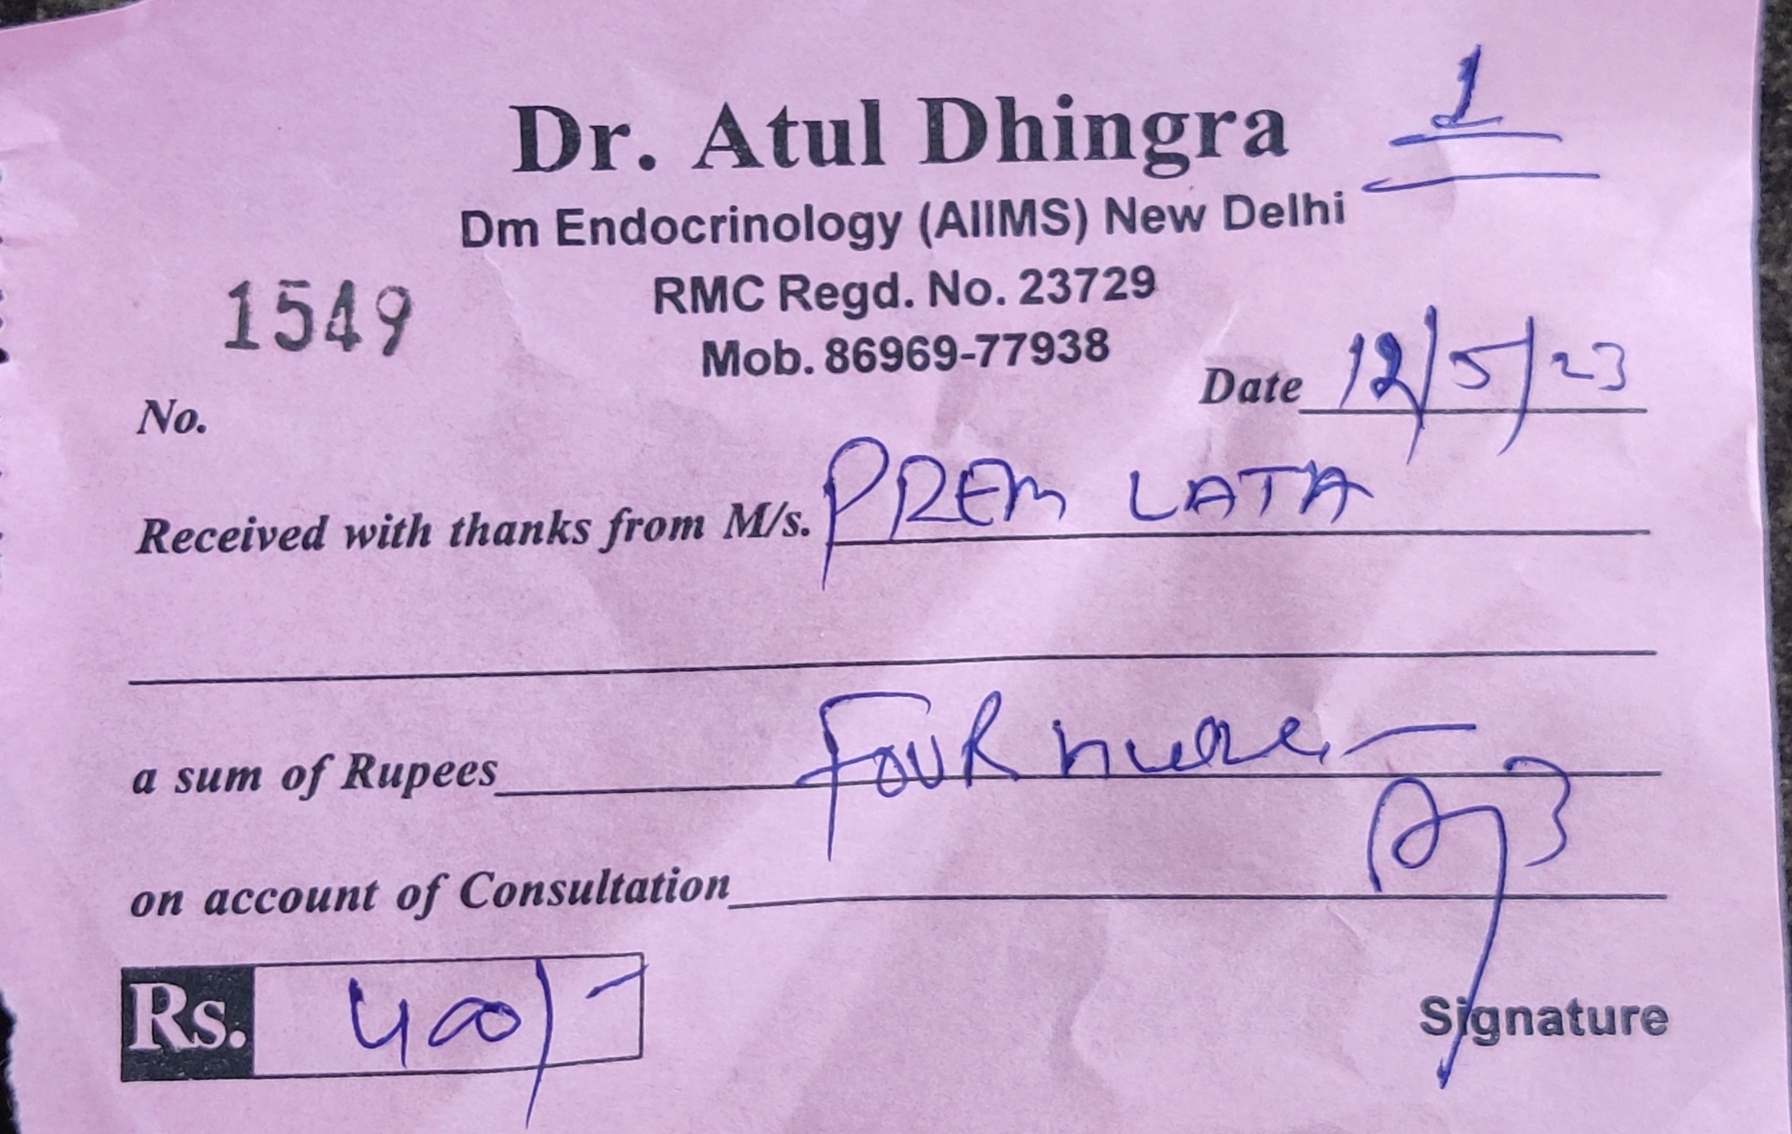 1
Dr. Atul Dhingra
Dm Endocrinology (AIIMS) New Delhi
RMC Regd. No. 23729
1549
Mob. 86969-77938
No.
Date 12/5/23
Received with thanks from M/s. PREM LATA
a sum of Rupees FOUR
on account of Consultation
Rs. 400/-
Signature